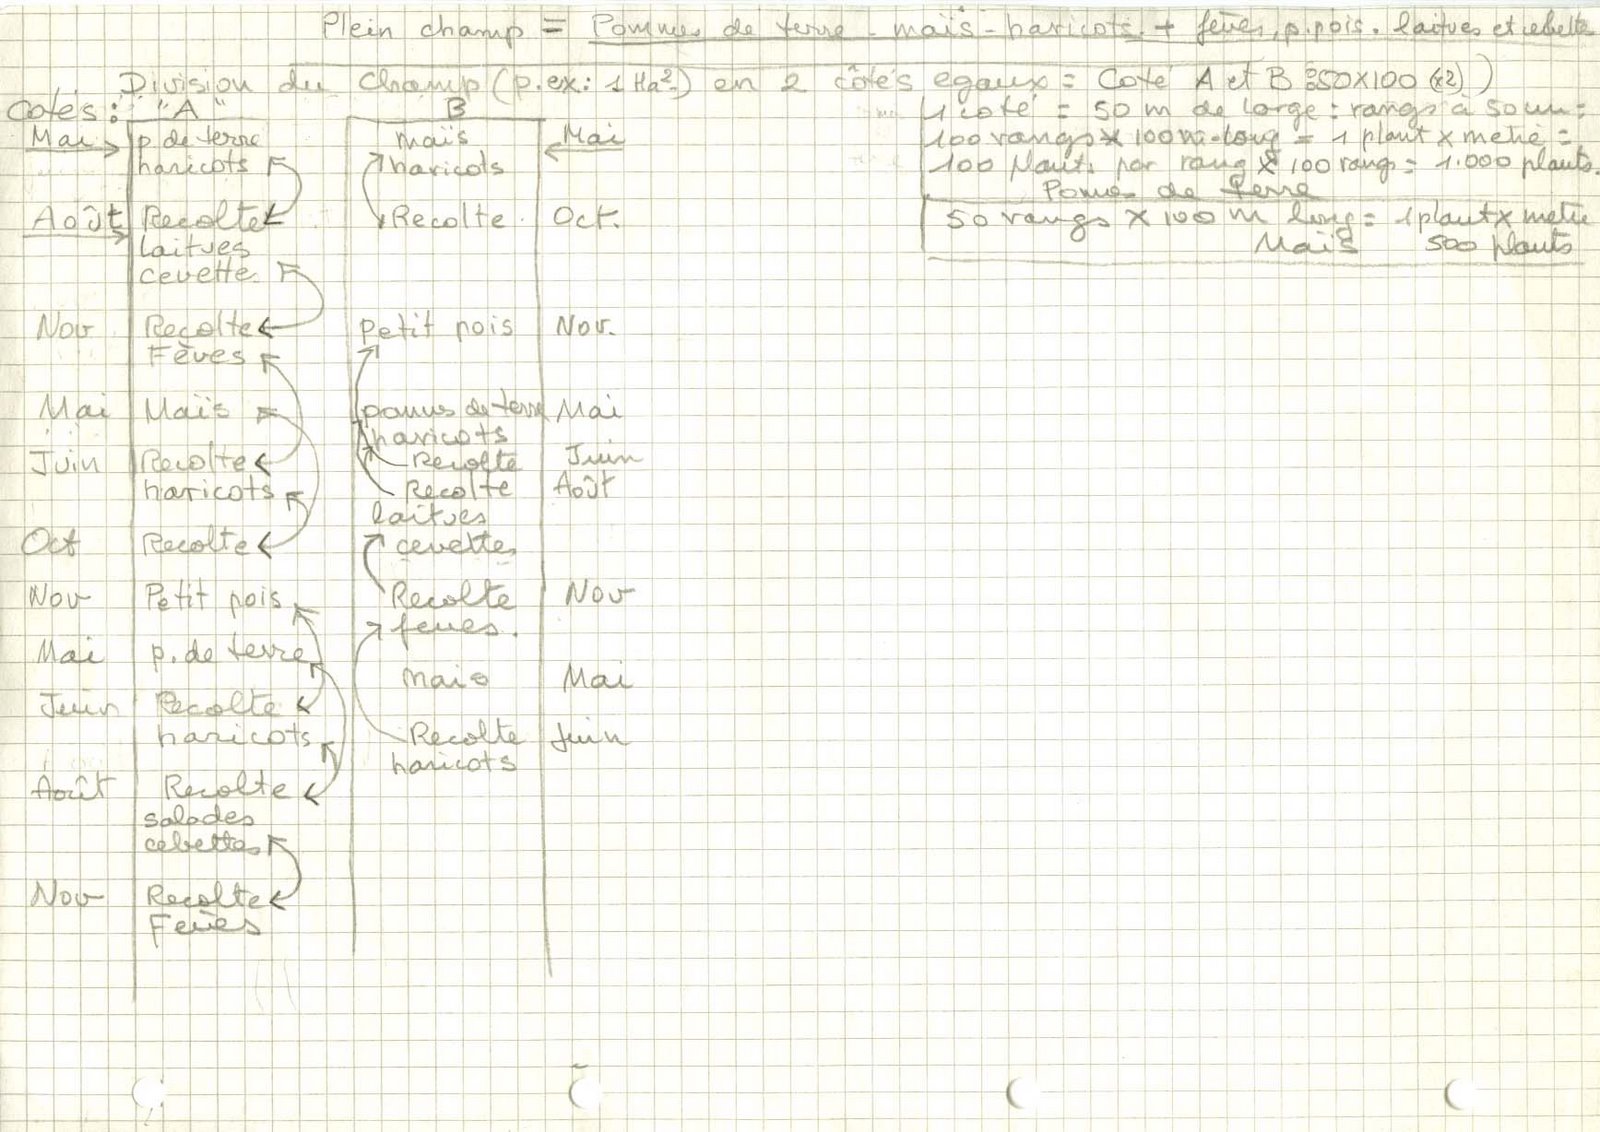 Plein champ = Pommes de terre - maïs - haricots + fèves, p.pois. laitues et cebette
Division du champ (p.ex: 1 Ha²) en 2 côtés egaux = Coté A et B = 50x100 (x2))
Cotés: "A" B
1 coté = 50 m de large = rangs à 50 cm =
100 rangs x 100 m-long = 1 plant x metre =
100 plants par rang x 100 rangs = 1.000 plants.
Pomes de terre
50 rangs x 100 m long = 1 plant x metre
Maïs 500 plants
Mai p. de terre maïs Mai
haricots haricots
Août Recolte Recolte Oct.
laitues
cevette
Nov Recolte petit pois Nov.
Fèves
Mai Maïs pomes de terre Mai
haricots
Juin Recolte Recolte Juin
haricots Recolte Août
laitues
Oct Recolte cevettes
Nov Petit pois Recolte Nov
feves.
Mai p. de terre
mais Mai
Juin Recolte
haricots Recolte Juin
haricots
Août Recolte
salades
cebettes
Nov Recolte
Feves